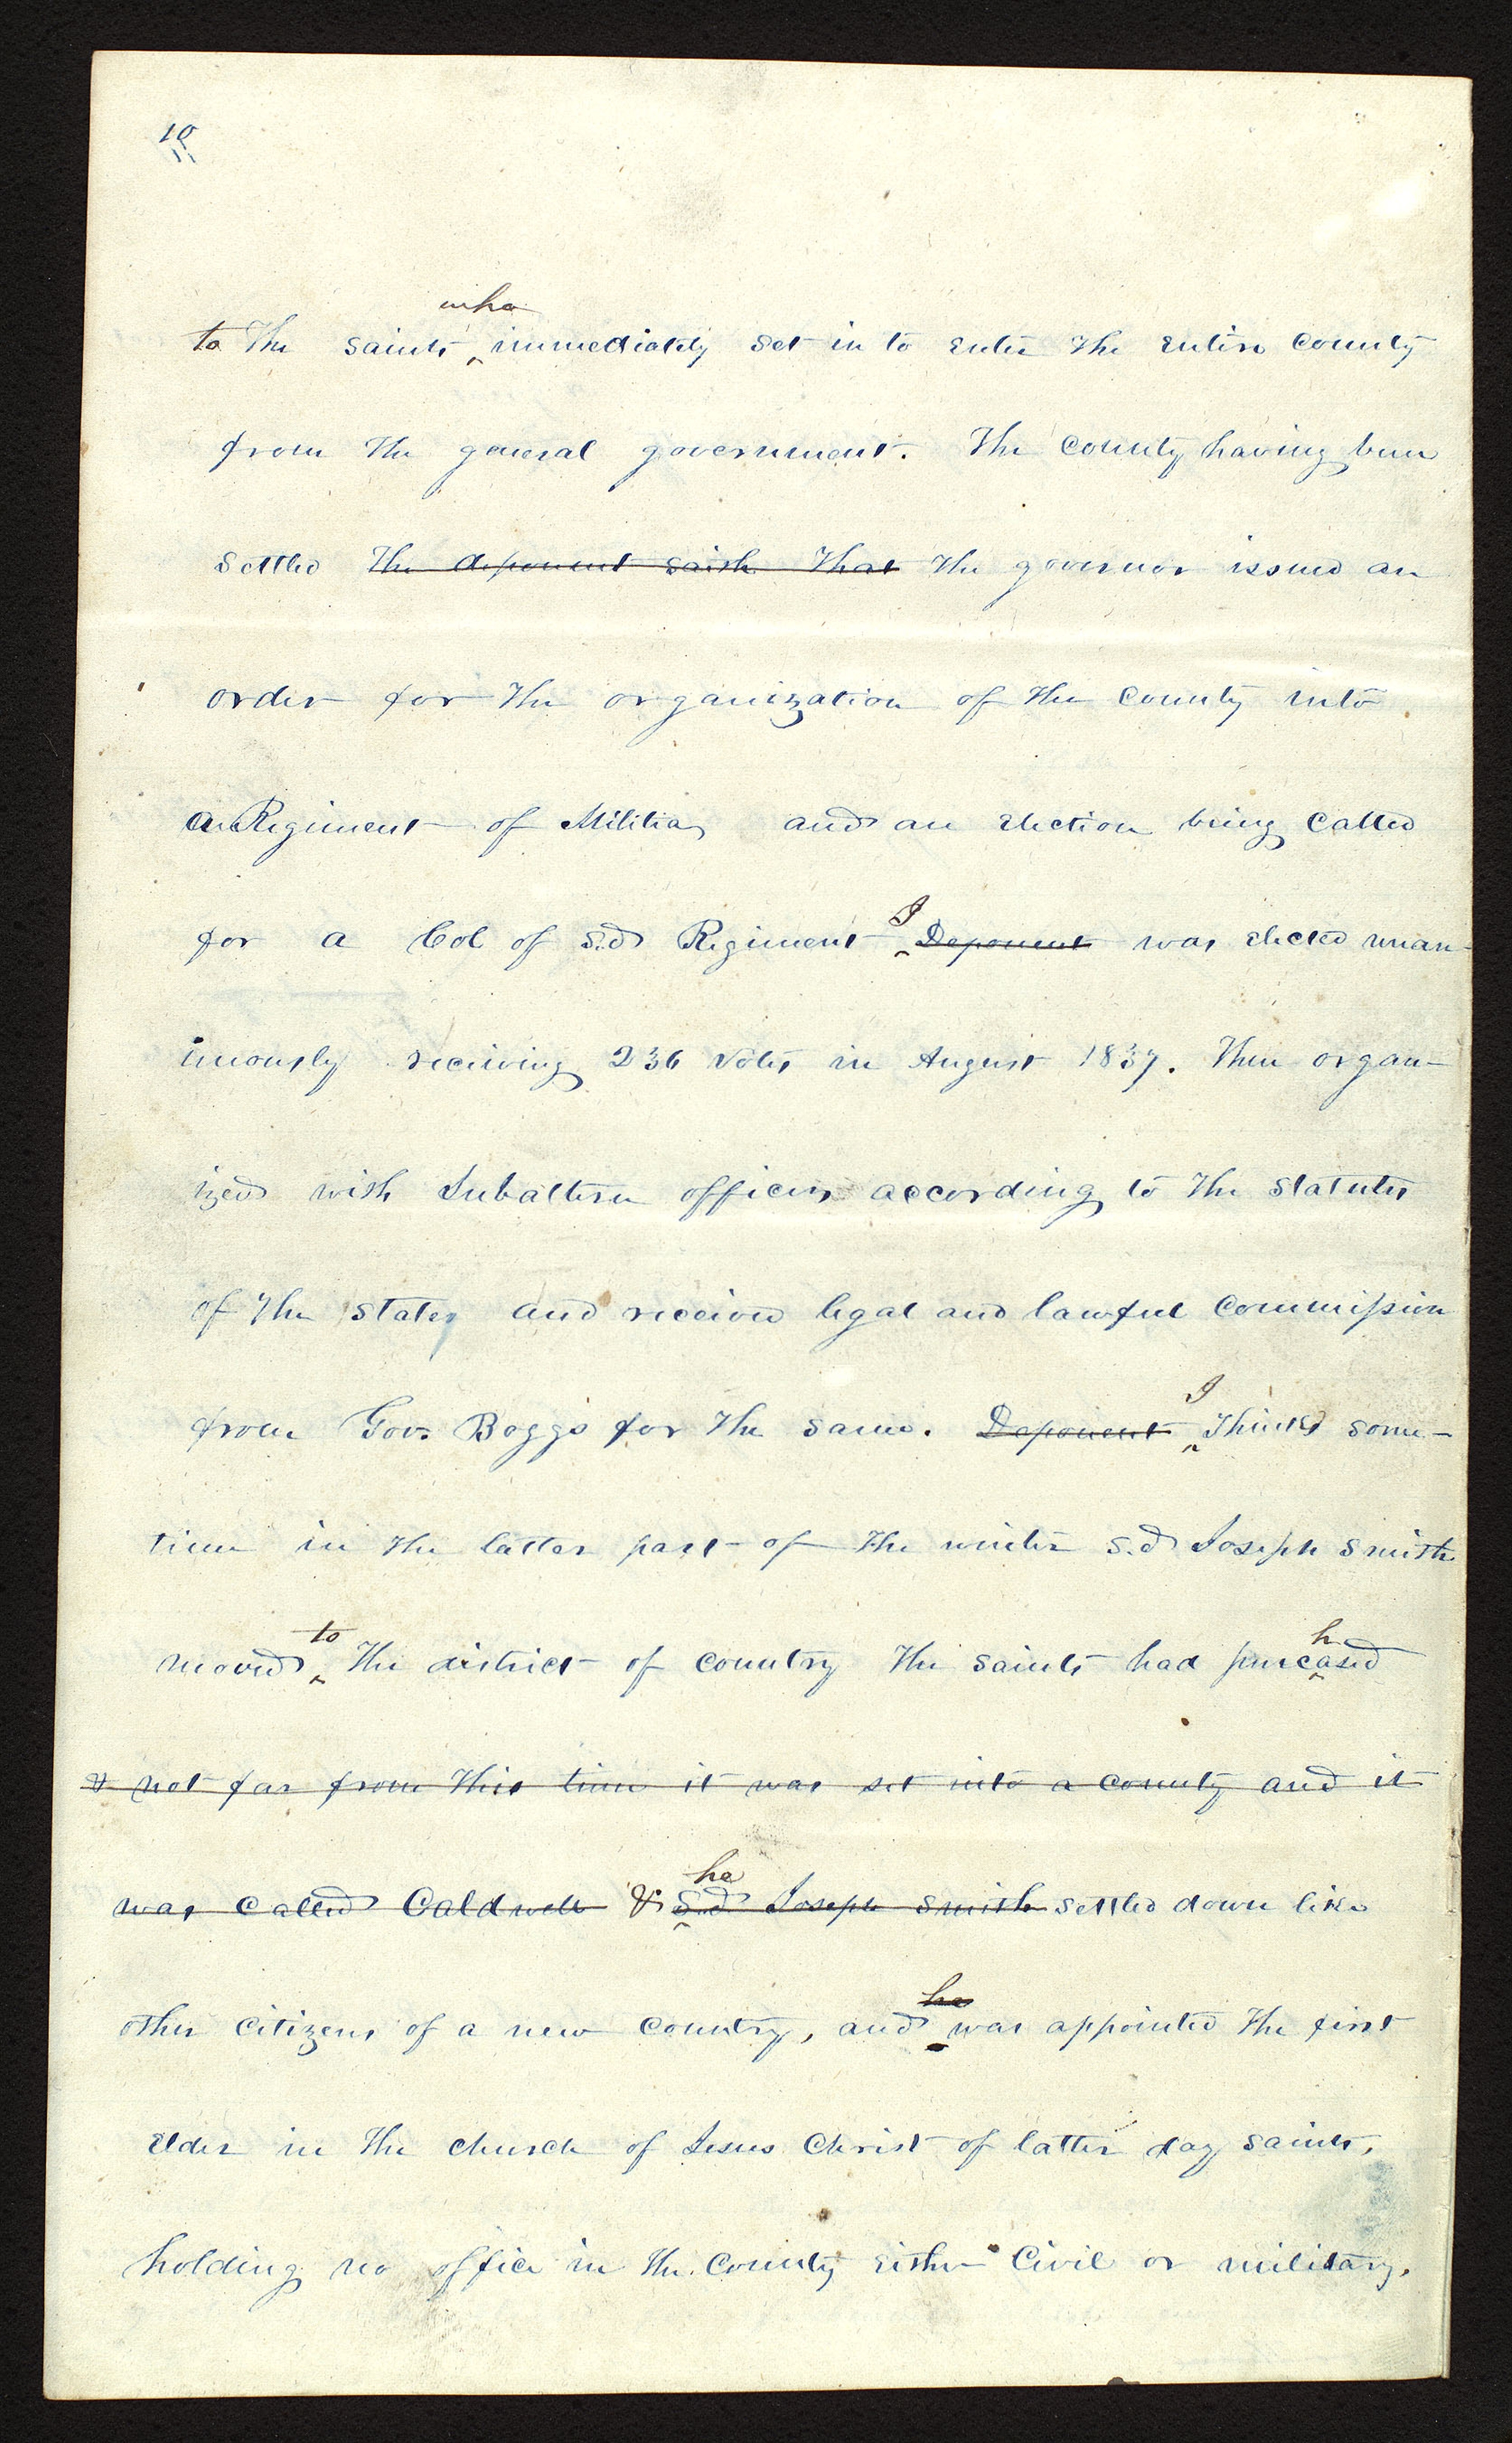 10
to the saints who immediately set in to enter the entire county
from the general government. The County having been
settled the deponent saith that the governor issued an
order for the organization of the County into
a Regiment of Militia, and an election being called
for a Col of s.d Regiment I Deponent was elected unan-
imously receiving 236 votes in August 1837. Then organ-
ized with Subaltern officers according to the statutes
of the State, and received legal and lawful commission
from Gov. Boggs for the same. Deponent I thinks some-
time in the latter part of the winter s.d Joseph Smith
moved to the district of country the saints had purchased
& not far from this time it was set into a county and it
was called Caldwell & he s.d Joseph Smith settled down like
other citizens of a new country, and he was appointed the first
elder in the church of Jesus Christ of latter day saints,
holding no office in the County either Civil or military.